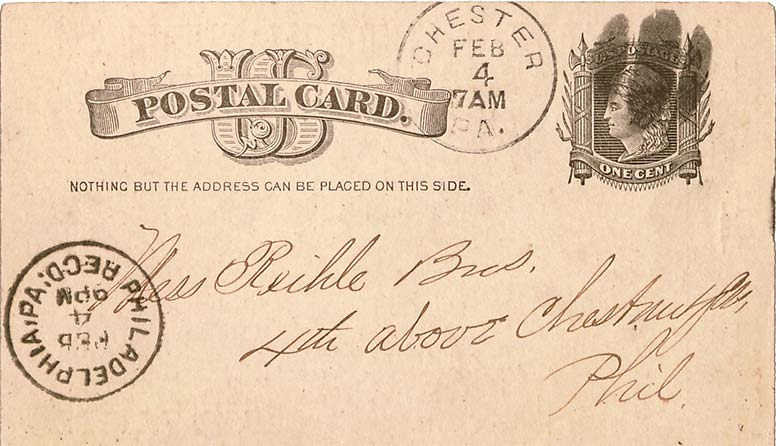 US
POSTAL CARD.
NOTHING BUT THE ADDRESS CAN BE PLACED ON THIS SIDE.
CHESTER
FEB
4
7AM
PA.
U.S. POSTAGE
ONE CENT
PHILADELPHIA, PA. REC'D.
FEB
4
PM
Mess Reihle Bros.
4th above Chestnut
Phil.